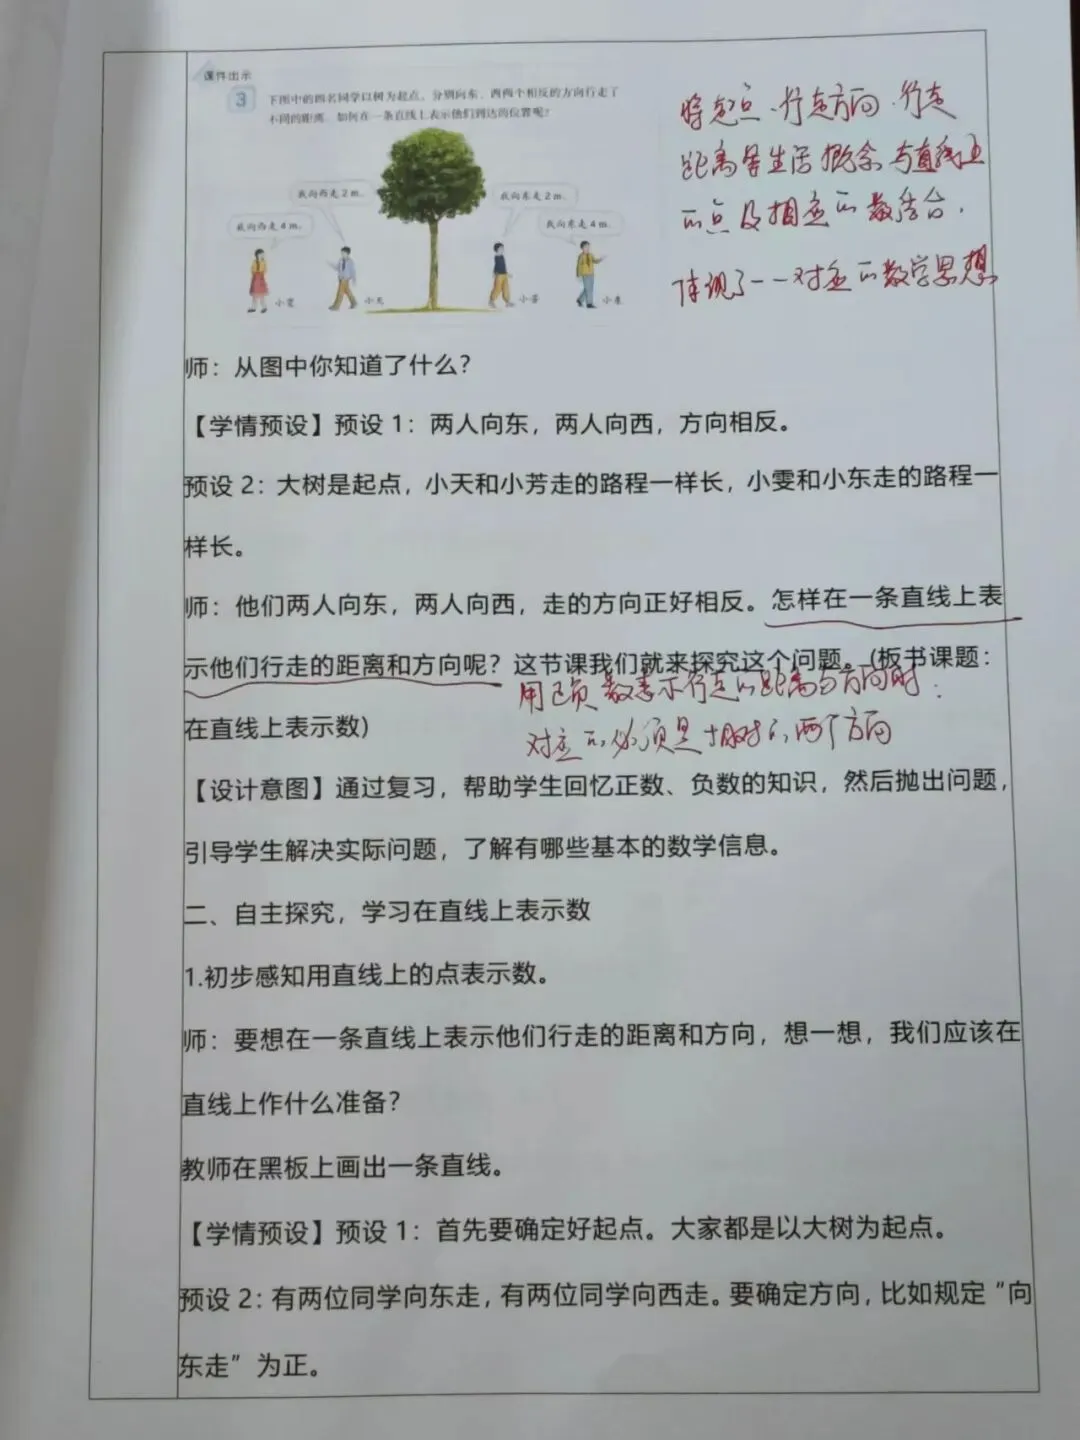 课件出示
3 下图中的四名同学以树为起点，分别向东、西两个相反的方向行走了
不同的距离，如何在一条直线上表示他们到达的位置呢？
我向西走2 m。
我向东走2 m。
我向西走4 m。
我向东走4 m。
小雯
小天
小芳
小东
将起点、行走方向、行走
距离等生活概念与直线上
的点及相应的数结合，
体现了一一对应的数学思想
师：从图中你知道了什么？
【学情预设】预设1：两人向东，两人向西，方向相反。
预设2：大树是起点，小天和小芳走的路程一样长，小雯和小东走的路程一
样长。
师：他们两人向东，两人向西，走的方向正好相反。怎样在一条直线上表
示他们行走的距离和方向呢？这节课我们就来探究这个问题。(板书课题：
用正负数表示行走的距离与方向时：
在直线上表示数)
对应的必须是相对的两个方向
【设计意图】通过复习，帮助学生回忆正数、负数的知识，然后抛出问题，
引导学生解决实际问题，了解有哪些基本的数学信息。
二、自主探究，学习在直线上表示数
1.初步感知用直线上的点表示数。
师：要想在一条直线上表示他们行走的距离和方向，想一想，我们应该在
直线上作什么准备？
教师在黑板上画出一条直线。
【学情预设】预设1：首先要确定好起点。大家都是以大树为起点。
预设2：有两位同学向东走，有两位同学向西走。要确定方向，比如规定“向
东走”为正。